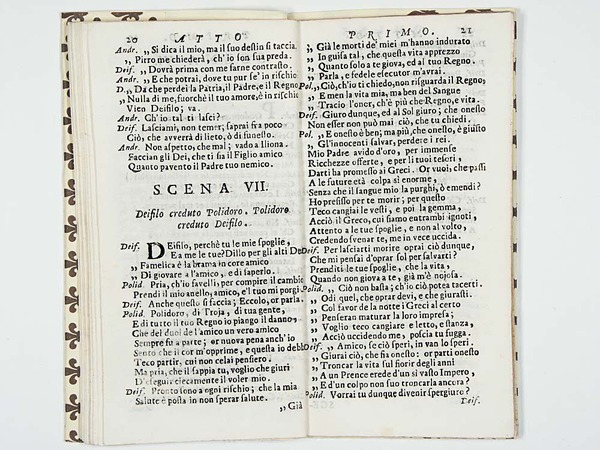 20 ATTO
Andr. „ Si dica il mio, ma il suo destin si taccia.
„ Pirro me chiederà, ch' io son sua preda.
Deif. „ Dovrà prima con me farne contrasto.
Andr. „ E che potrai, dove tu pur se' in rischio
D. „ Da che perdei la Patria, il Padre, e il Regno,
„ Nulla di me, fuorchè il tuo amore, è in rischio
Vien Deifilo; va.
Andr. Ch' io tal ti lasci?
Deif. Lasciami, non temer; saprai fra poco
Ciò, che avverrà di lieto, ò di funesto.
Andr. Non aspetto, che mal; vado a Iliona.
Faccian gli Dei, che ti sia il Figlio amico
Quanto pavento il Padre tuo nemico.
SCENA VII.
Deifilo creduto Polidoro. Polidoro
creduto Deifilo.
Deif. DEifilo, perchè tu le mie spoglie,
E a me le tue? Dillo per gli alti Dei
„ Famelica è la brama in core amico
„ Di giovare a l'amico, e di saperlo.
Polid. Pria, ch'io favelli, per compire il cambio
Prendi il mio anello, amico, e'l tuo mi porgi
Deif. Anche questo si faccia; Eccolo, or parla.
Polid. Polidoro, di Troja, di tua gente,
E di tutto il tuo Regno io piango il danno,
Che del duol de l'amico un vero amico
Sempre fu a parte; or nuova pena anch'io
Sento che il cor m'opprime, e questa io debbo
Teco partir, cui non celai pensiero.
Ma pria, che il sappia tu, voglio che giuri
D'eseguir ciecamente il voler mio.
Deif. Pronto sono a ogni rischio; che la mia
Salute è posta in non sperar salute.
„ Già
PRIMO. 21
„ Già le morti de' miei m'hanno indurato
„ In guisa tal, che questa vita apprezzo
„ Quanto solo a te giova, ed al tuo Regno.
„ Parla, e fedele esecutor m'avrai.
Pol. „ Ciò, ch'io ti chiedo, non risguarda il Regno,
„ E men la vita mia, ma ben del Sangue
„ Tracio l'onor, ch'è più che Regno, e vita.
Deif. Giuro dunque, ed al Sol giuro; che onesto
Non esser non può mai ciò, che tu chiedi.
Pol. „ E onesto è ben; ma più, che onesto, è giusto
„ Gl'innocenti salvar, perdere i rei.
Mio Padre avido d'oro, per immense
Ricchezze offerte, e per li tuoi tesori,
Darti ha promesso ai Greci. Or vuoi, che passi
A le future età colpa sì enorme,
Senza che il sangue mio la purghi, ò emendi?
Ho prefisso per te morir; per questo
Teco cangiai le vesti, e poi la gemma,
Acciò il Greco, cui siamo entrambi ignoti,
Attento a le tue spoglie, e non al volto,
Credendo svenar te, me in vece uccida.
Deif. Per lasciarti morire oprai ciò dunque,
Che mi pensai d'oprar sol per salvarti?
Prenditi le tue spoglie, che la vita,
Quando non giova a te, già m'è nojosa.
Polid. „ Ciò non basta; ch'io ciò potea tacerti.
„ Odi quel, che oprar devi, e che giurasti.
„ Col favor de la notte i Greci al certo
„ Penseran maturar la loro impresa;
„ Voglio teco cangiare e letto, e stanza,
„ Acciò uccidendo me, poscia tu fugga.
Deif. „ Amico, se ciò speri, in van lo speri.
„ Giurai ciò, che sia onesto: or parti onesto
„ Troncar la vita sul fiorir degli anni
„ A un Prence erede d'un sì vasto Impero,
„ E d'un colpo non suo troncarla ancora?
Polid. Vorrai tu dunque divenir spergiuro?
Deif.